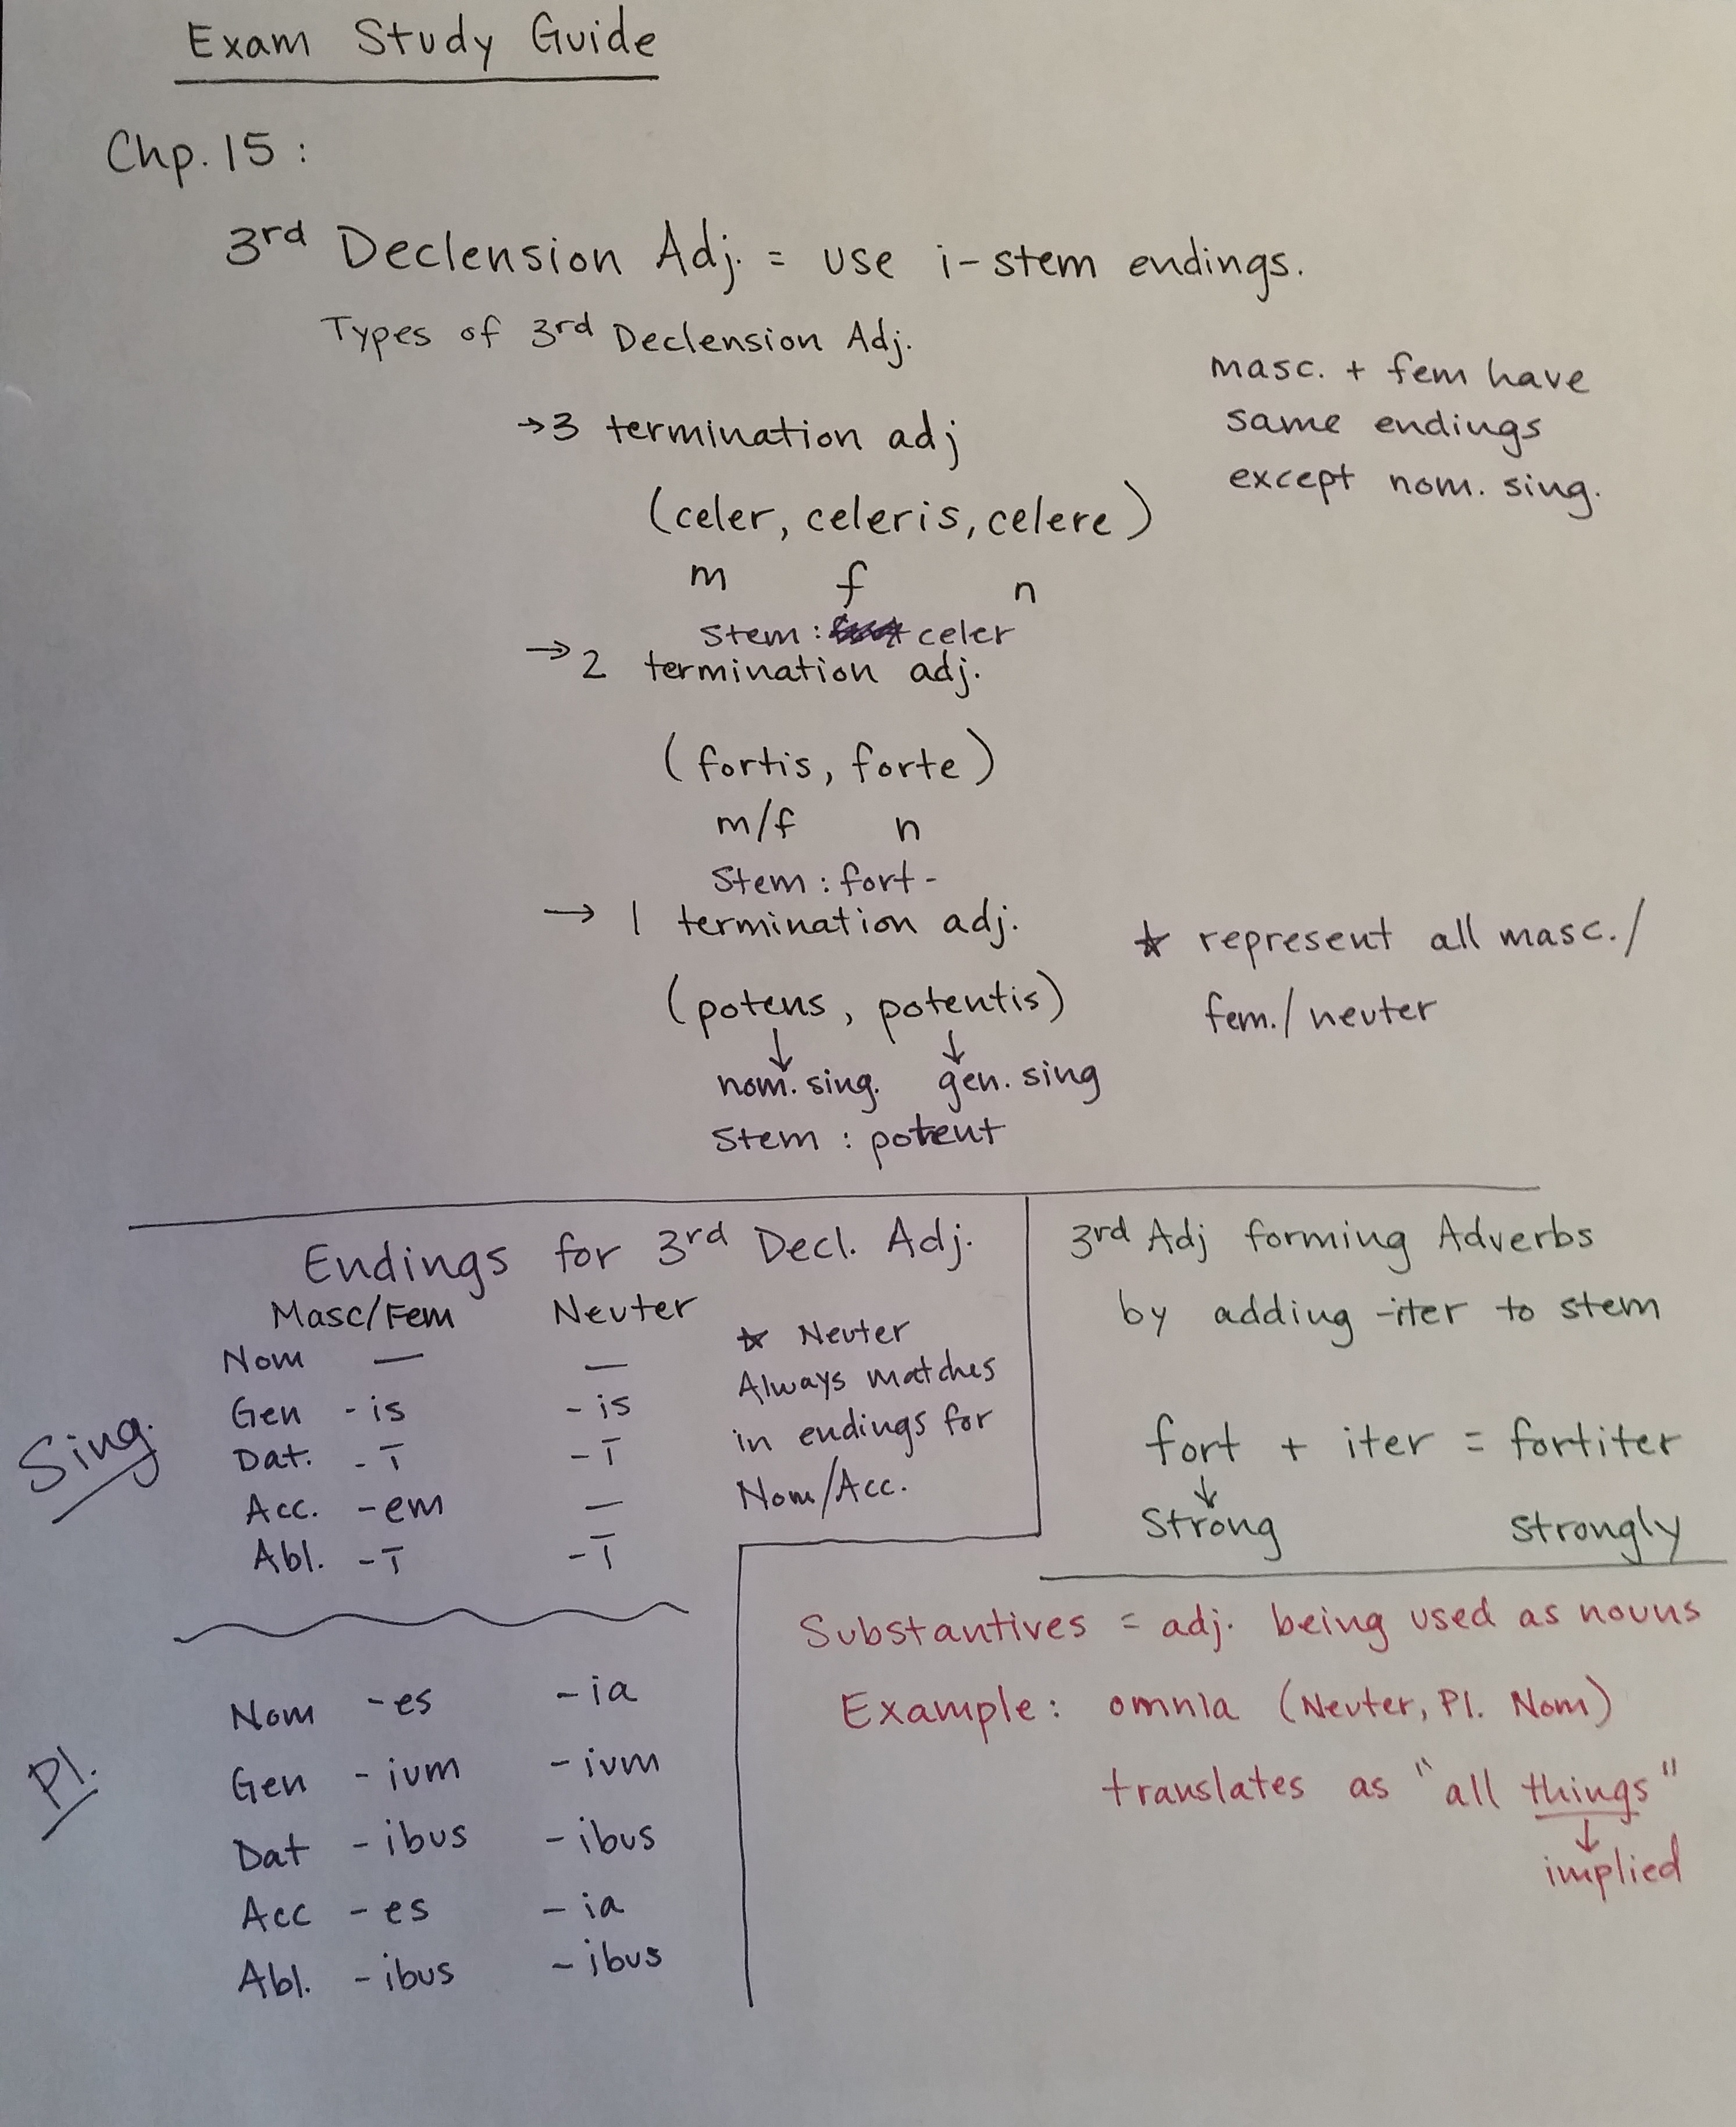 Exam Study Guide
Chp. 15 :
3rd Declension Adj. = use i-stem endings.
Types of 3rd Declension Adj.
masc. + fem have
same endings
except nom. sing.
→3 termination adj
(celer, celeris, celere)
m f n
Stem : celer
→ 2 termination adj.
(fortis, forte)
m/f n
Stem : fort-
→ 1 termination adj.
(potens, potentis)
↓ ↓
nom. sing. gen. sing
Stem : potent
☆ represent all masc./
fem./neuter
Endings for 3rd Decl. Adj.
Masc/Fem Neuter
Sing.
Nom — —
Gen -is -is
Dat. -ī -ī
Acc. -em —
Abl. -ī -ī
☆ Neuter
Always matches
in endings for
Nom/Acc.
Pl.
Nom -es -ia
Gen -ium -ium
Dat -ibus -ibus
Acc -es -ia
Abl. -ibus -ibus
3rd Adj forming Adverbs
by adding -iter to stem
fort + iter = fortiter
↓
Strong strongly
Substantives = adj. being used as nouns
Example : omnia (Neuter, Pl. Nom)
translates as "all things"
↓
implied